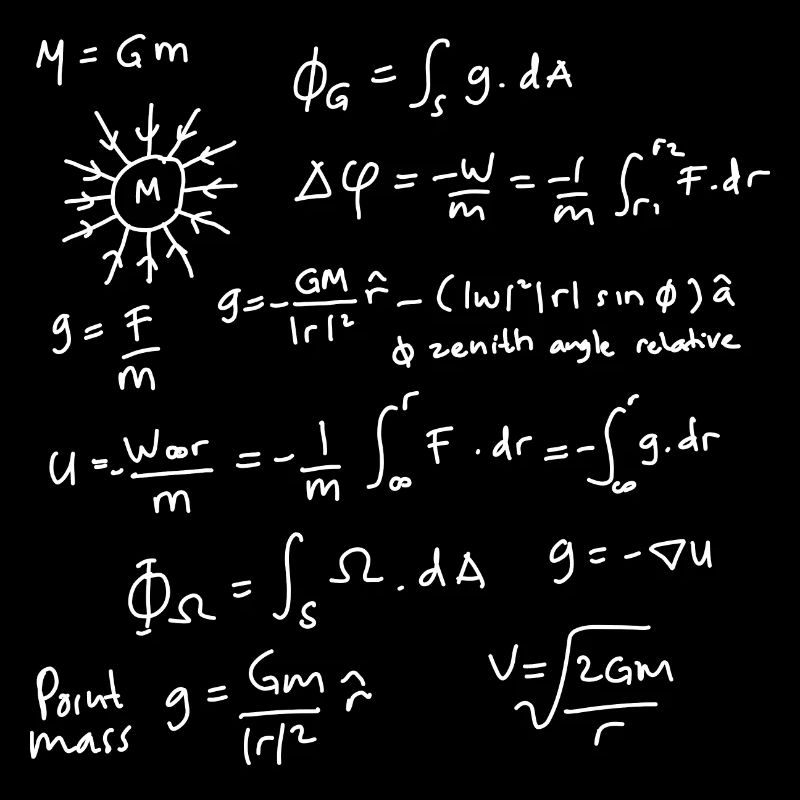 M = Gm
ϕ_G = ∫_S g . dA
M
Δφ = -W/m = -1/m ∫_{r1}^{r2} F . dr
g = F/m
g = - GM/|r|² r̂ - (|w|²|r| sin ϕ) â
ϕ zenith angle relative
U = - W∞r/m = - 1/m ∫_∞^r F . dr = - ∫_∞^r g . dr
Φ_Ω = ∫_S Ω . dA
g = -∇U
Point mass g = Gm/|r|² r̂
V = √(2Gm/r)